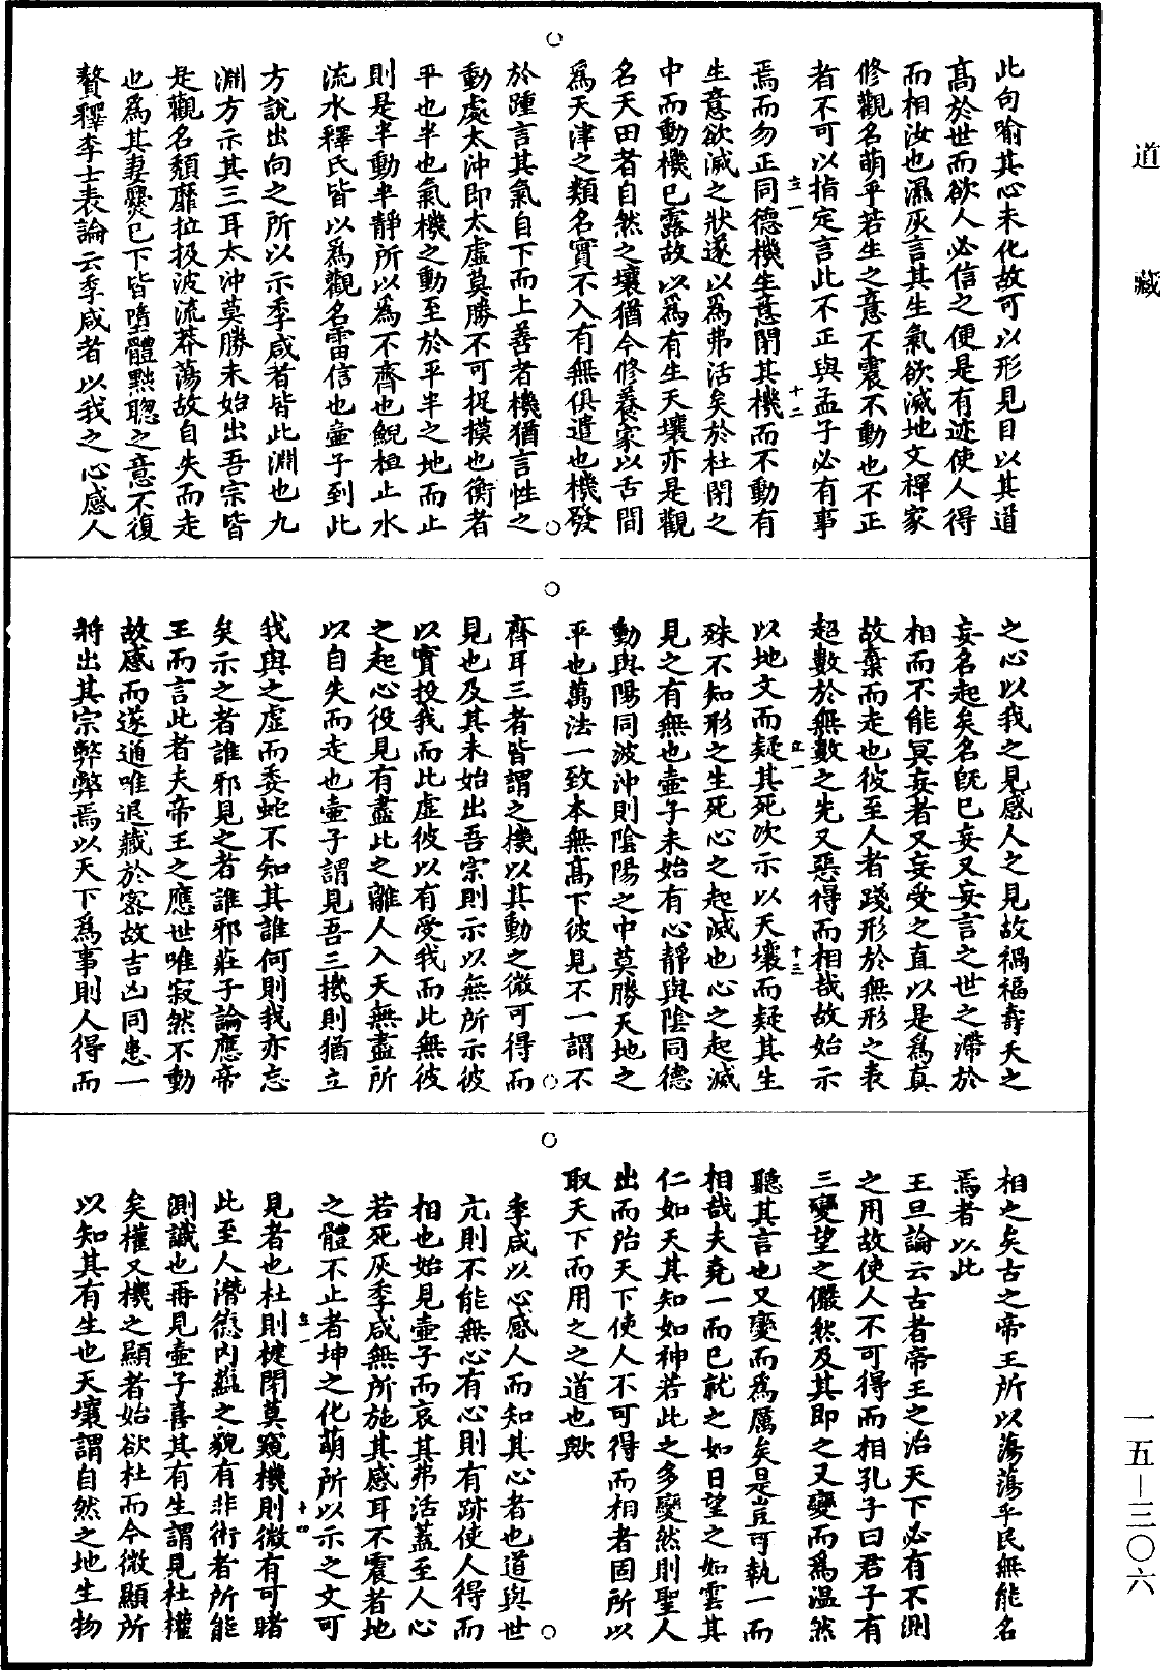 道藏
一五—三〇六
此句喻其心未化故可以形見目以其道
高於世而欲人必信之便是有迹使人得
而相汝也濕灰言其生氣欲滅地文禪家
修觀名萌乎若生之意不震不動也不正
者不可以指定言此不正與孟子必有事
立一 十二
焉而勿正同德機生意閉其機而不動有
生意欲滅之狀遂以為弗活矣於杜閉之
中而動機已露故以為有生天壤亦是觀
名天田者自然之壤猶今修養家以舌間
為天津之類名實不入有無俱遣也機發
於踵言其氣自下而上善者機猶言性之
動處太沖即太虛莫勝不可捉摸也衡者
平也半也氣機之動至於平半之地而止
則是半動半靜所以為不齊也鯢桓止水
流水釋氏皆以為觀名雷信也壷子到此
方說出向之所以示季咸者皆此淵也九
淵方示其三耳太沖莫勝未始出吾宗皆
是觀名頹靡拉扱波流莽蕩故自失而走
也為其妻爨已下皆墮體黜聰之意不復
贅釋李士表論云季咸者以我之心感人
之心以我之見感人之見故禍福壽夭之
妄名起矣名旣已妄又妄言之世之滯於
相而不能冥妄者又妄受之直以是為真
故棄而走也彼至人者踐形於無形之表
超數於無數之先又惡得而相哉故始示
立一 十三
以地文而疑其死次示以天壤而疑其生
殊不知形之生死心之起滅也心之起滅
見之有無也壷子未始有心靜與陰同德
動與陽同波沖則陰陽之中莫勝天地之
平也萬法一致本無高下彼見不一謂不
齊耳三者皆謂之機以其動之微可得而
見也及其未始出吾宗則示以無所示彼
以實投我而此虛彼以有受我而此無彼
之起心役見有盡此之離人入天無盡所
以自失而走也壷子謂見吾三機則猶立
我與之虛而委蛇不知其誰何則我亦忘
矣示之者誰邪見之者誰邪莊子論應帝
王而言此者夫帝王之應世唯寂然不動
故感而遂通唯退藏於密故吉凶同患一
將出其宗弊弊焉以天下為事則人得而
相之矣古之帝王所以蕩蕩乎民無能名
焉者以此
王旦論云古者帝王之治天下必有不測
之用故使人不可得而相孔子曰君子有
三變望之儼然及其即之又變而為温然
聽其言也又變而為厲矣是豈可執一而
相哉夫堯一而已就之如日望之如雲其
仁如天其知如神若此之多變然則聖人
出而治天下使人不可得而相者固所以
取天下而用之之道也歟
季咸以心感人而知其心者也道與世
亢則不能無心有心則有跡使人得而
相也始見壷子而哀其弗活蓋至人心
若死灰季咸無所施其感耳不震者地
之體不止者坤之化萌所以示之文可
立一 十四
見者也杜則楗閉莫窺機則微有可睹
此至人潛德內蘊之貌有非術者所能
測識也再見壷子喜其有生謂見杜權
矣權又機之顯者始欲杜而今微顯所
以知其有生也天壤謂自然之地生物